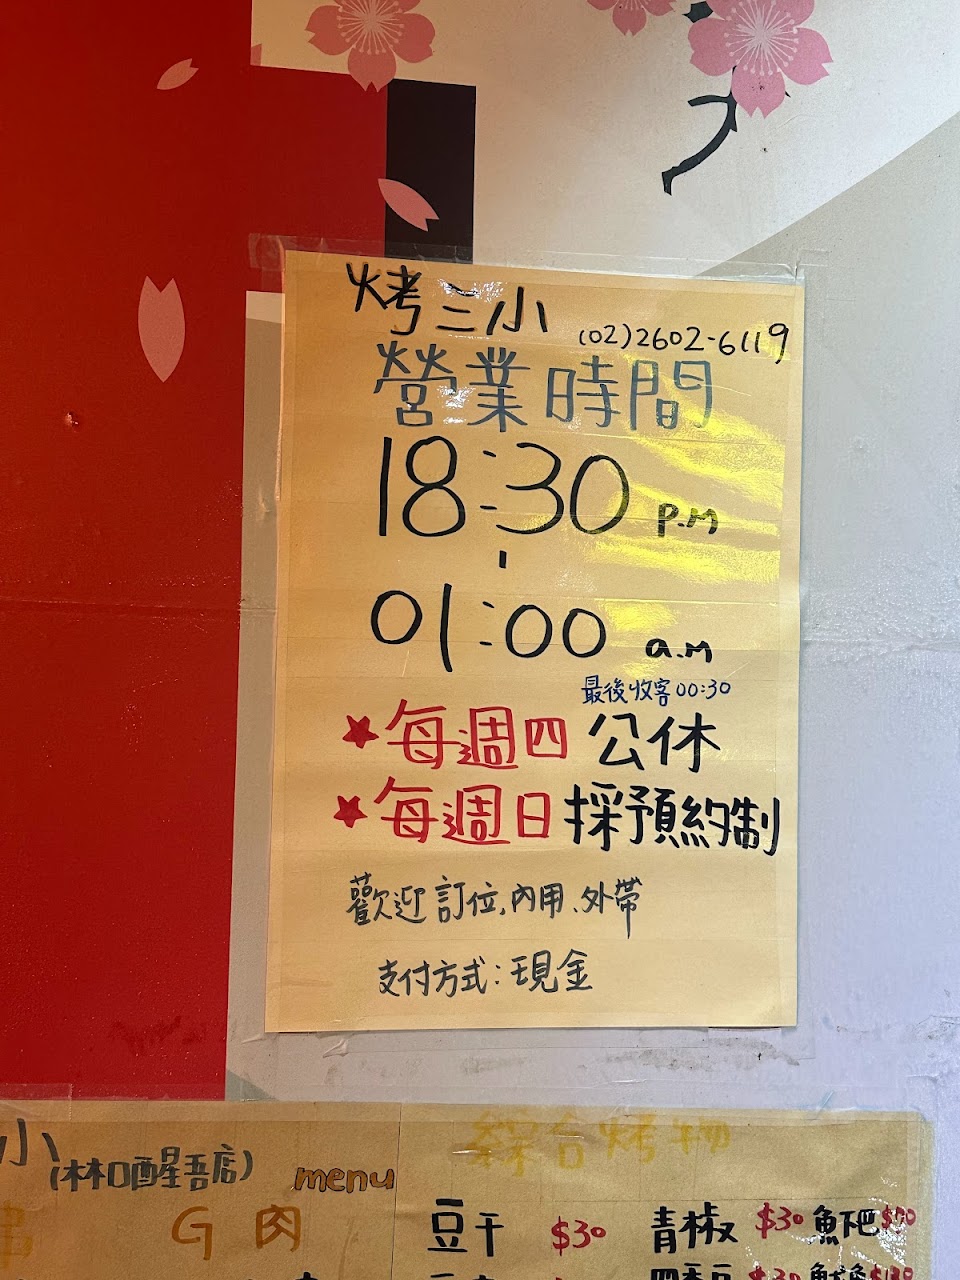 烤三小
(02)2602-6119
營業時間
18:30 p.m
01:00 a.m
最後收客00:30
★每週四 公休
★每週日採預約制
歡迎訂位、內用、外帶
支付方式:現金
小(林口醒吾店) menu
綜合烤物
串 G肉
豆干 $30 青椒 $30 魚下巴